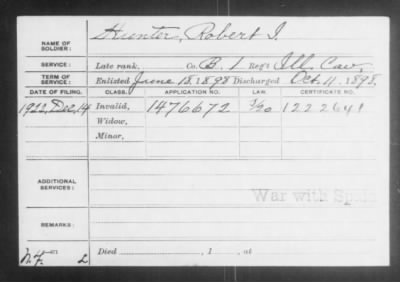 Hunter, Robert I.
NAME OF SOLDIER:
SERVICE: Late rank, Co. B. 1 Reg't Ill. Cav.
TERM OF SERVICE: Enlisted June 18 1898 Discharged Oct. 11, 1898.
DATE OF FILING. CLASS. APPLICATION NO. LAW. CERTIFICATE NO.
1922, Dec, 14 Invalid, 1476672 1222641
Widow,
Minor,
ADDITIONAL SERVICES:
War with Spain
REMARKS:
Died , 1 , at